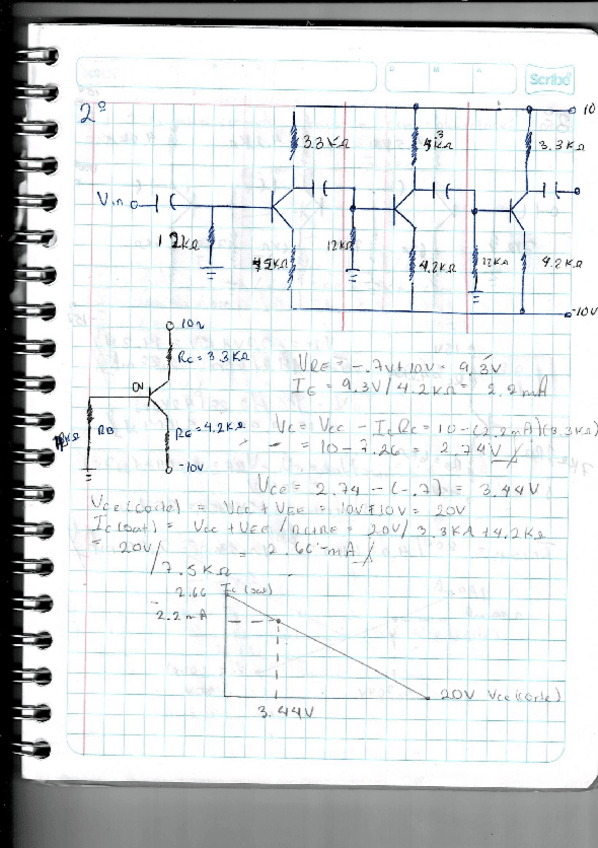 Scribe
D M A
2º
10
3.3KΩ
3.3KΩ
Vin
12KΩ
12KΩ
4.2KΩ
12KΩ
4.2KΩ
-10V
Rc = 3.3KΩ
0V
RB
RE = 4.2KΩ
-10V
VRE = -.7V+10V = 9.3V
IE = 9.3V/4.2KΩ = 2.2mA
Vc = Vcc - IcRc = 10-(2.2mA)(3.3KΩ)
= 10-7.26 = 2.74V
Vce = 2.74 - (-.7) = 3.44V
Vce(corte) = Vcc + VEE = 10V+10V = 20V
Ic(sat) = Vcc + VEE / Rc+RE = 20V/ 3.3KΩ+4.2KΩ
= 20V/7.5KΩ = 2.66 mA
2.66 Ic(sat)
2.2mA
20V Vce(corte)
3.44V